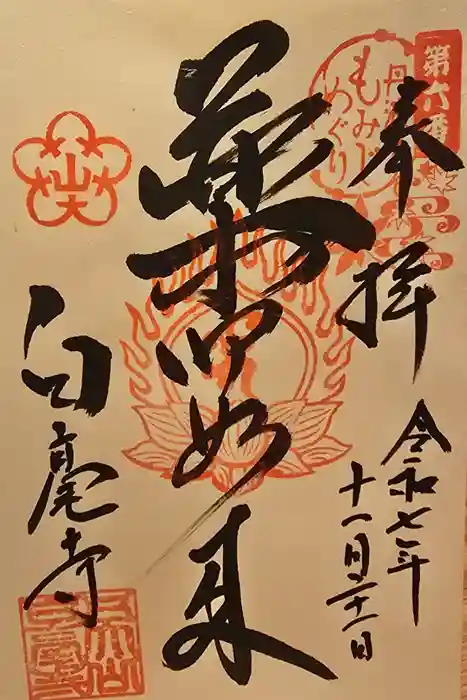 第六番
丹波
もみじ
めぐり
奉拝
令和七年
十一月二十一日
薬師如来
白毫寺